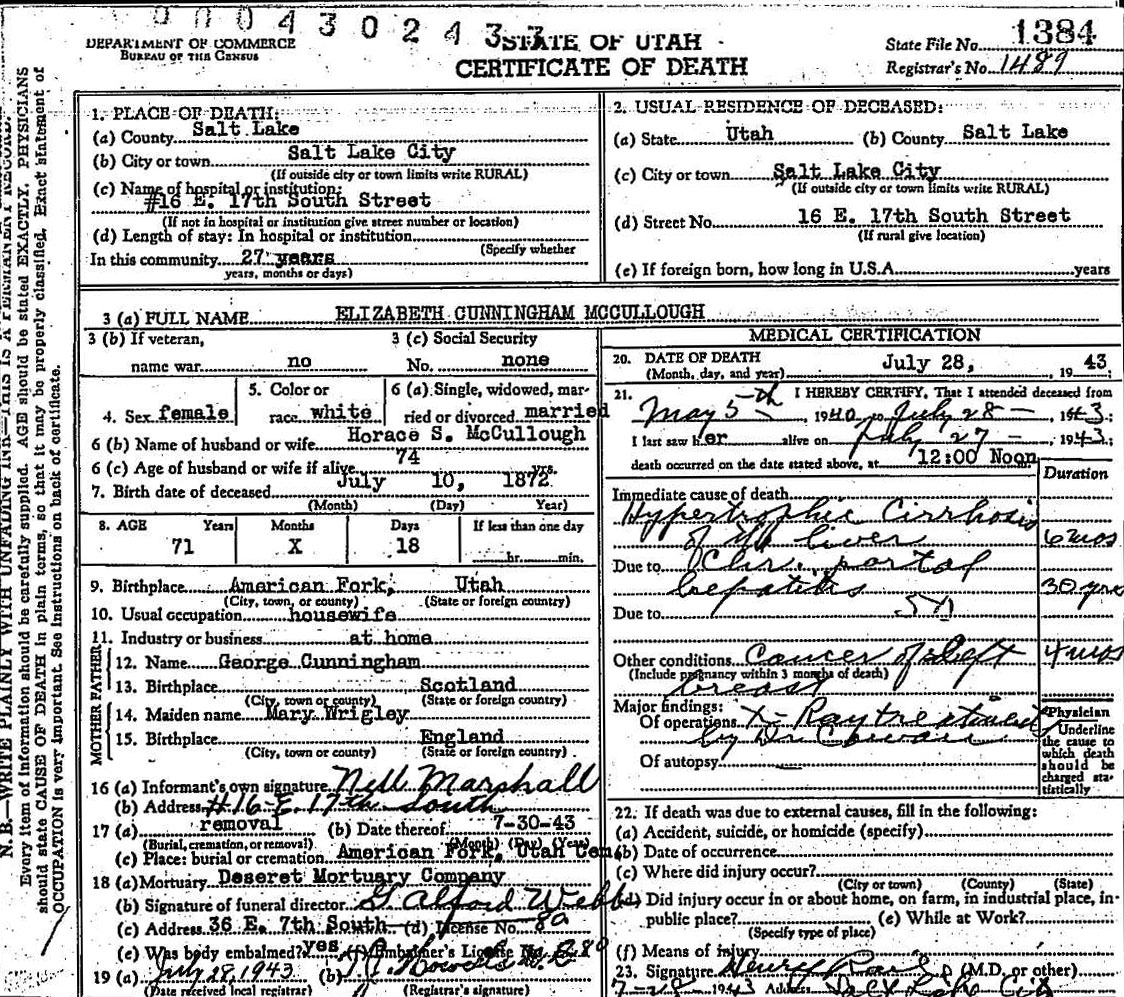 9 0 0 4 3 0 2 4 3 3
DEPARTMENT OF COMMERCE
BUREAU OF THE CENSUS
STATE OF UTAH
CERTIFICATE OF DEATH
State File No. 1384
Registrar's No. 1489
N. B.—WRITE PLAINLY WITH UNFADING INK—THIS IS A PERMANENT RECORD.
Every item of information should be carefully supplied. AGE should be stated EXACTLY. PHYSICIANS
should state CAUSE OF DEATH in plain terms, so that it may be properly classified. Exact statement of
OCCUPATION is very important. See instructions on back of certificate.
1. PLACE OF DEATH:
(a) County Salt Lake
(b) City or town Salt Lake City
(If outside city or town limits write RURAL)
(c) Name of hospital or institution:
#16 E. 17th South Street
(If not in hospital or institution give street number or location)
(d) Length of stay: In hospital or institution
(Specify whether
In this community 27 years
years, months or days)
2. USUAL RESIDENCE OF DECEASED:
(a) State Utah (b) County Salt Lake
(c) City or town Salt Lake City
(If outside city or town limits write RURAL)
(d) Street No. 16 E. 17th South Street
(If rural give location)
(e) If foreign born, how long in U.S.A. years
3 (a) FULL NAME ELIZABETH CUNNINGHAM MCCULLOUGH
3 (b) If veteran, 3 (c) Social Security
name war no No. none
4. Sex female 5. Color or race white 6 (a) Single, widowed, married or divorced married
6 (b) Name of husband or wife Horace S. McCullough
6 (c) Age of husband or wife if alive 74 yrs.
7. Birth date of deceased July 10, 1872
(Month) (Day) Year)
8. AGE Years Months Days If less than one day
71 X 18 hr. min.
9. Birthplace American Fork, Utah
(City, town, or county) (State or foreign country)
10. Usual occupation housewife
11. Industry or business at home
FATHER
12. Name George Cunningham
13. Birthplace Scotland
(City, town or county) (State or foreign country)
MOTHER
14. Maiden name Mary Wrigley
15. Birthplace England
(City, town, or county) (State or foreign country)
16 (a) Informant's own signature Nell Marshall
(b) Address #16 E. 17th South
17 (a) removal (b) Date thereof 7-30-43
(Burial, cremation, or removal) (Month) (Day) (Year)
(c) Place: burial or cremation American Fork, Utah Cem.
18 (a) Mortuary Deseret Mortuary Company
(b) Signature of funeral director G Alford Webb
(c) Address 36 E. 7th South (d) License No. 80
(e) Was body embalmed? yes (f) Embalmer's License No. 280
19 (a) July 28, 1943 (b)
(Date received local registrar) (Registrar's signature)
MEDICAL CERTIFICATION
20. DATE OF DEATH July 28, 19 43
(Month, day, and year)
21. I HEREBY CERTIFY, That I attended deceased from
May 5th, 1940 to July 28, 1943;
I last saw her alive on July 27, 1943;
death occurred on the date stated above, at 12:00 Noon
Duration
Immediate cause of death
Hypertrophic Cirrhosis
of the liver 6 mos
Due to Chr. portal
hepatitis 30 yrs
Due to
Other conditions Cancer of left 4 mos
(Include pregnancy within 3 months of death)
breast
Major findings:
Of operations X-Ray treatment
by Dr Cowan
Of autopsy —
Physician
Underline
the cause to
which death
should be
charged sta-
tistically
22. If death was due to external causes, fill in the following:
(a) Accident, suicide, or homicide (specify)
(b) Date of occurrence
(c) Where did injury occur?
(City or town) (County) (State)
(d) Did injury occur in or about home, on farm, in industrial place, in
public place? (e) While at Work?
(Specify type of place)
(f) Means of injury
23. Signature (M.D. or other)
7-28 1943 Address Salt Lake City